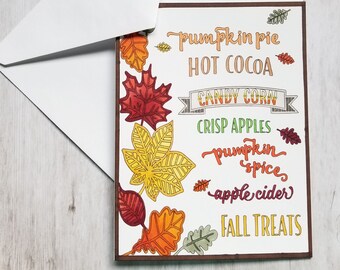 pumpkin pie
HOT COCOA
CANDY CORN
CRISP APPLES
pumpkin
spice
apple cider
FALL TREATS